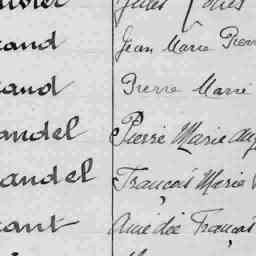 and Jean Marie Pierr
and Pierre Marie
andel Pierre Marie Aug
andel François Marie
cant Amédée François